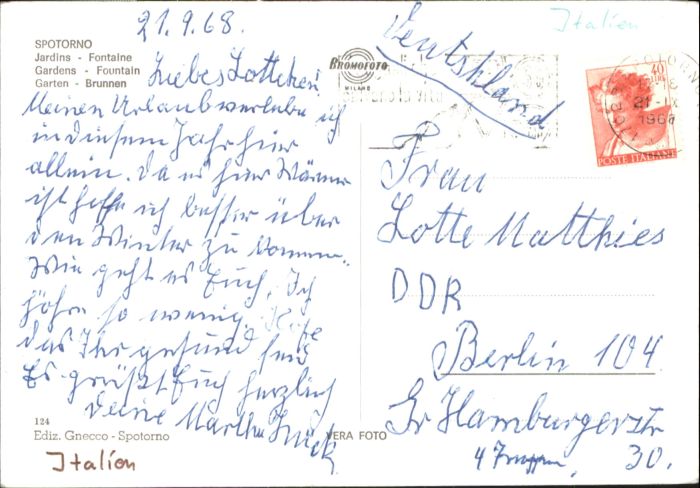 21.9.68.
Italien
SPOTORNO
Jardins - Fontaine
Gardens - Fountain
Garten - Brunnen
BROMOFOTO
MILANO
Deutschland
40
21-IX
196
POSTE ITALIANE
Liebes Lottchen
Meinen Urlaub verlebe ich
in diesem Jahr hier
allein. Da es hier Wärmer
ist hoffe ich besser über
den Winter zu kommen.
Wie geht es Euch, Ich
höhre so wenig. Hoffe
das Ihr gesund seid
Es grüßt Euch herzlich
Deine Martha
Frau
Lotte Matthies
DDR
Berlin 104
Gr Hamburgerstr
4 30.
124
Ediz. Gnecco - Spotorno
VERA FOTO
Italien